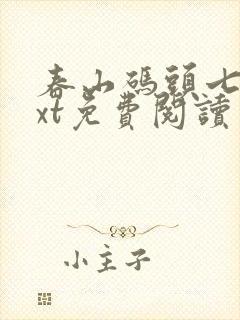 春山碼頭七
xt免費閱讀
小主子